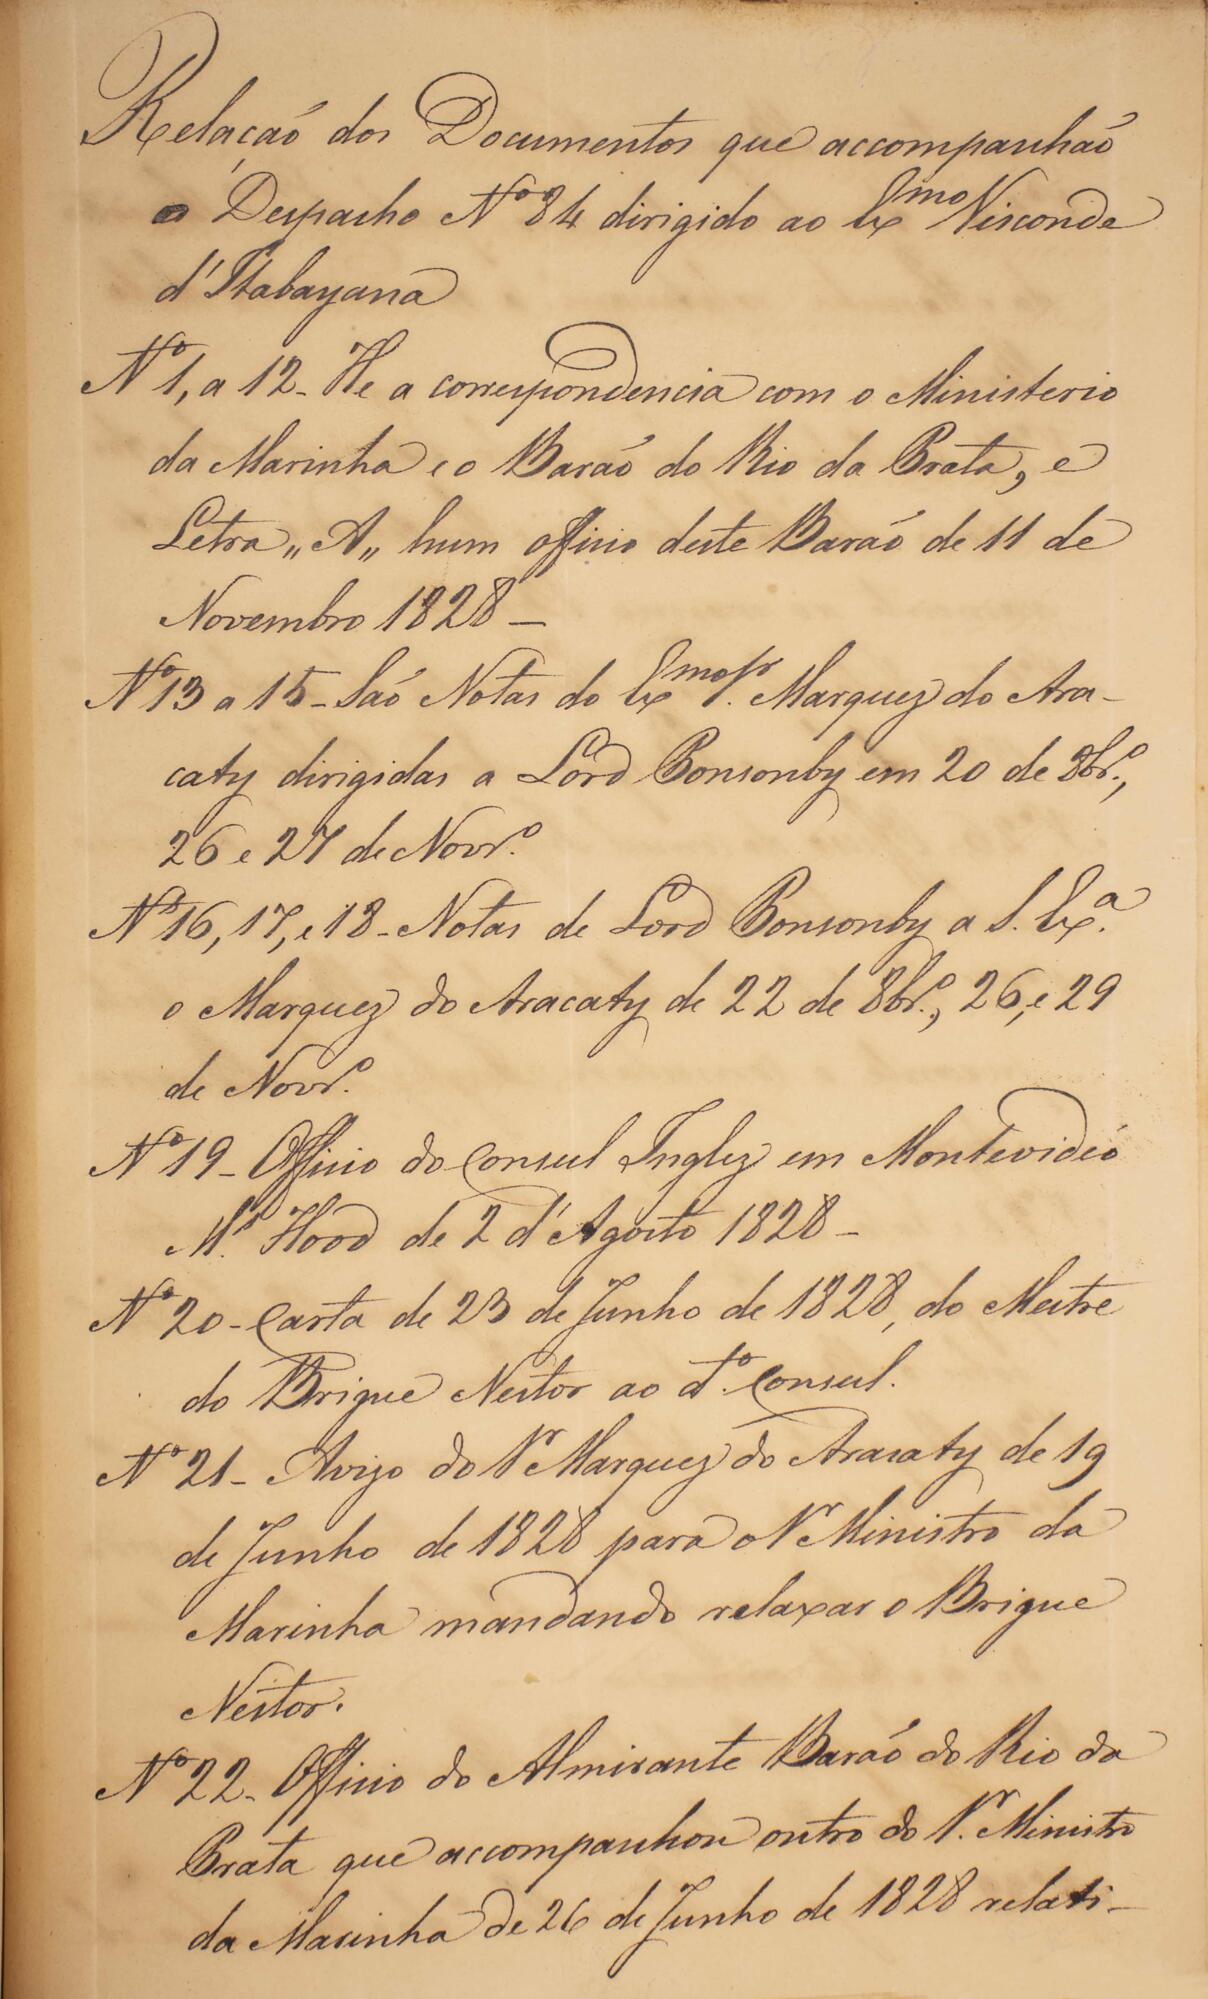 Relação dos Documentos que accompanhão
o Despacho Nº 84 dirigido ao Exmo Visconde
d'Itabayana
Nº 1, a 12 - He a correspondencia com o Ministerio
da Marinha e o Barão do Rio da Prata, e
Letra „A„ hum officio deste Barão de 11 de
Novembro 1828 -
Nº 13 a 15 - São Notas do Exmo Sr. Marquez do Ara-
caty dirigidas a Lord Ponsonby em 20 de 8br.º,
26 e 27 de Novr.º
Nº 16, 17, e 18 - Notas de Lord Ponsonby a S. Ex.ª
o Marquez do Aracaty de 22 de 8br.º, 26, e 29
de Novr.º
Nº 19 - Officio do Consul Inglez em Montevidéo
Mr. Hood de 2 d'Agosto 1828 -
Nº 20 - Carta de 23 de Junho de 1828, do Mestre
do Brigue Nestor ao d.º Consul.
Nº 21 - Avizo do Sr Marquez do Aracaty de 19
de Junho de 1828 para o Sr Ministro da
Marinha mandando relaxar o Brigue
Nestor.
Nº 22 - Officio do Almirante Barão do Rio da
Prata que accompanhou outro do Sr. Ministro
da Marinha de 26 de Junho de 1828 relati-